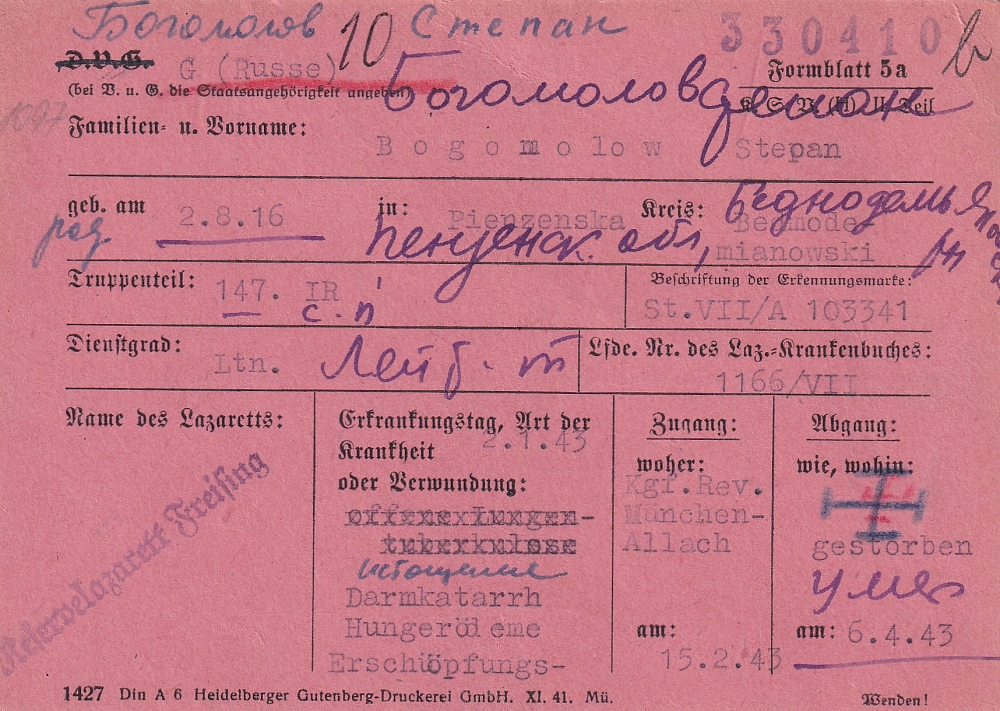 Богомолов 10 Степан 330410
D.V.G. G (Russe) Formblatt 5a
(bei V. u. G. die Staatsangehörigkeit angeben) Богомолов
Familien- u. Vorname: Bogomolow Stepan
geb. am 2.8.16 in: Pienzenska Kreis: Bednode-
род Пензенск. обл, mianowski
Truppenteil: 147. IR Beschriftung der Erkennungsmarke:
с. п St.VII/A 103341
Dienstgrad: Ltn. Лейт Lfde. Nr. des Laz.-Krankenbuches:
1166/VII
Name des Lazaretts:
Reservelazarett Freising
Erkrankungstag, Art der
Krankheit 2.1.43
oder Verwundung:
offene Lungen-
tuberkulose
истощение
Darmkatarrh
Hungerödeme
Erschöpfungs-
Zugang:
woher:
Kgf.Rev.
München-
Allach
am:
15.2.43
Abgang:
wie, wohin:
gestorben
умер
am: 6.4.43
1427 Din A 6 Heidelberger Gutenberg-Druckerei GmbH. XI. 41. Mü. Wenden!